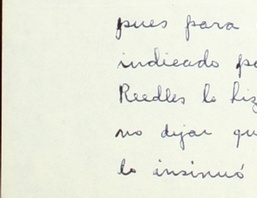 pues para
indicado po
Reedles le hiz
no dijar qu
lo insinuó